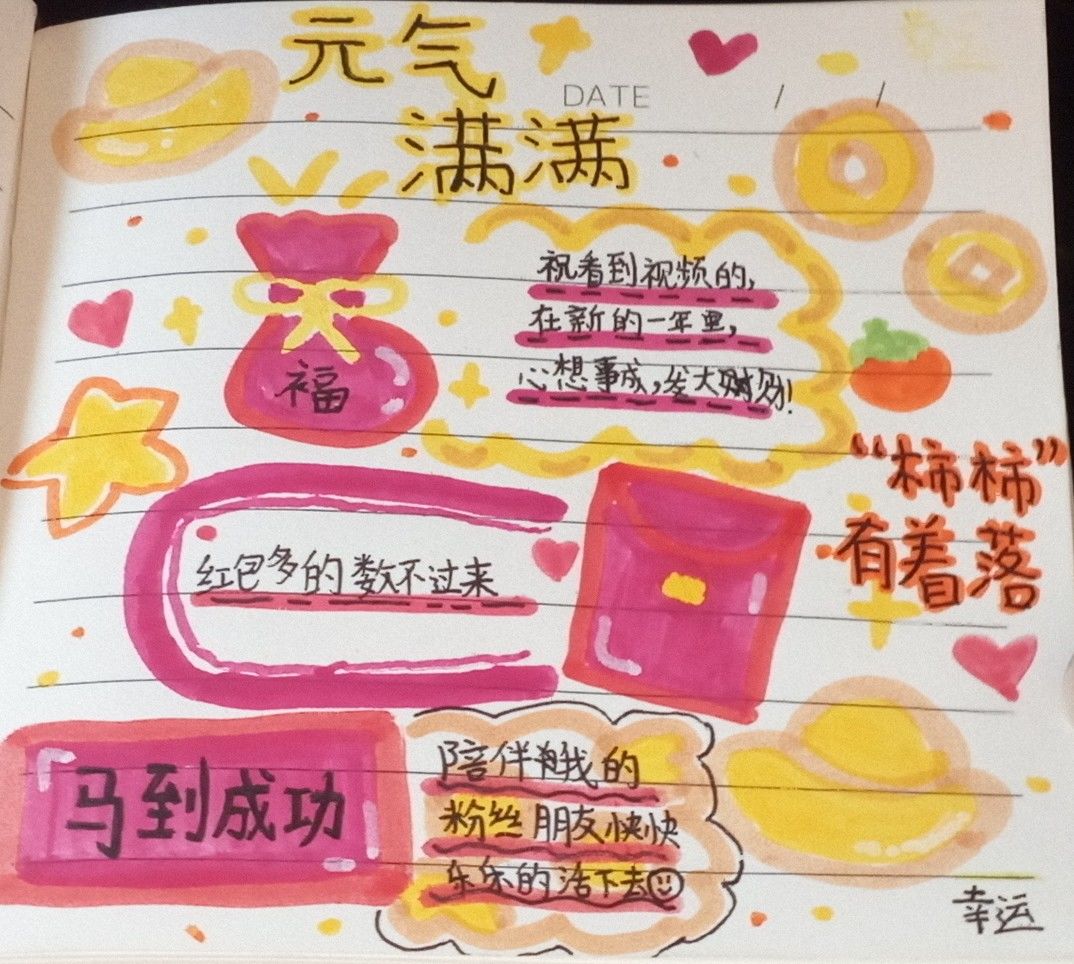 元气
满满
DATE / /
祝看到视频的,
在新的一年里,
心想事成,发大财财!
福
“柿柿”
有着落
红包多的数不过来
马到成功
陪伴我的
粉丝朋友快快
乐乐的活下去
幸运